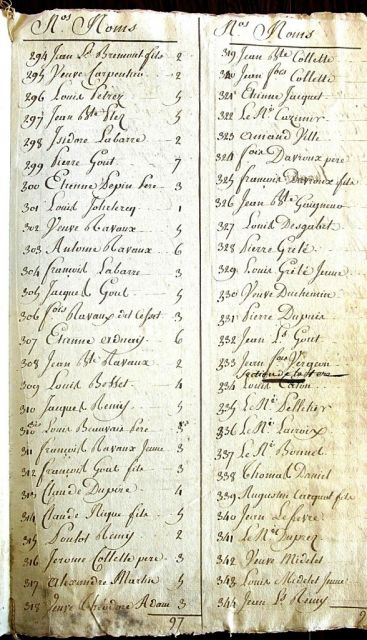 Nos Noms
294 Jean Bte Bremont fils 2
295 Veuve Carpentier 2
296 Louis Petrez 5
297 Jean Bte 5
298 Isidore Labarre 2
299 Pierre Gout 7
300 Etienne Pepin Pere 3
301 Louis 1
302 Veuve Ravaux 5
303 Antoine Ravaux 6
304 François Labarre 3
305 Jacques Gout 5
306 fois Ravaux dit 3
307 Etienne 6
308 Jean Bte Ravaux 2
309 Louis Bosset 4
310 Jacques Remy 5
310 Louis Beauvais pere 3
311 François Ravaux Jeune 3
312 François Gout fils 3
313 Claude Dupire 4
314 Claude Rique fils 5
315 Poulot Remy 2
316 Jerome Collette pere 3
317 Alexandre Martin 5
318 Veuve Théodore Adam 3
97
Nos Noms
319 Jean Bte Collette
320 Jean fois Collette
321 Etienne Jacquet
322 Le Né Cazimir
323 Amand Ville
324 fois Davroux pere
325 François Davroux fils
326 Jean Bte
327 Louis Desgabet
328 Pierre Grélé
329 Louis Grélé Jeune
330 Veuve Duchemin
331 Pierre Dupuis
332 Jean Le Gout
333 Jean fois Vergeon
334 Louis Caton
335 Le Né Pelletier
336 Le Né Lairoix
337 Le Né Bonnel
338 Thomas Daniel
339 Augustin fils
340 Jean Lefevre
341 Le Né Duprez
342 Veuve Midelet
343 Louis Midelet Jeune
344 Jean Remy